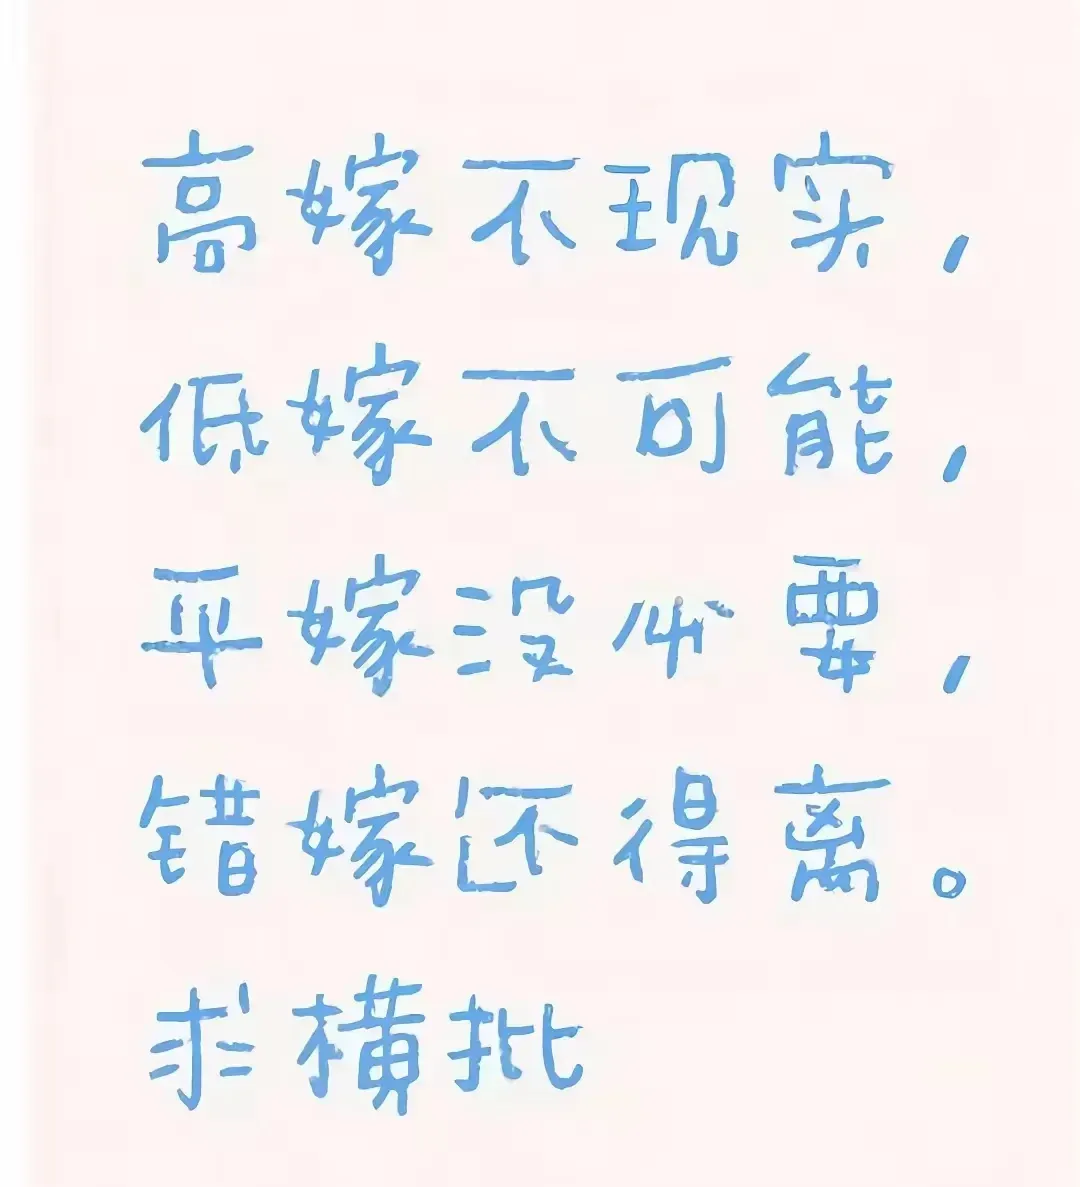 高嫁不现实，
低嫁不可能，
平嫁没必要，
错嫁还得离。
求横批